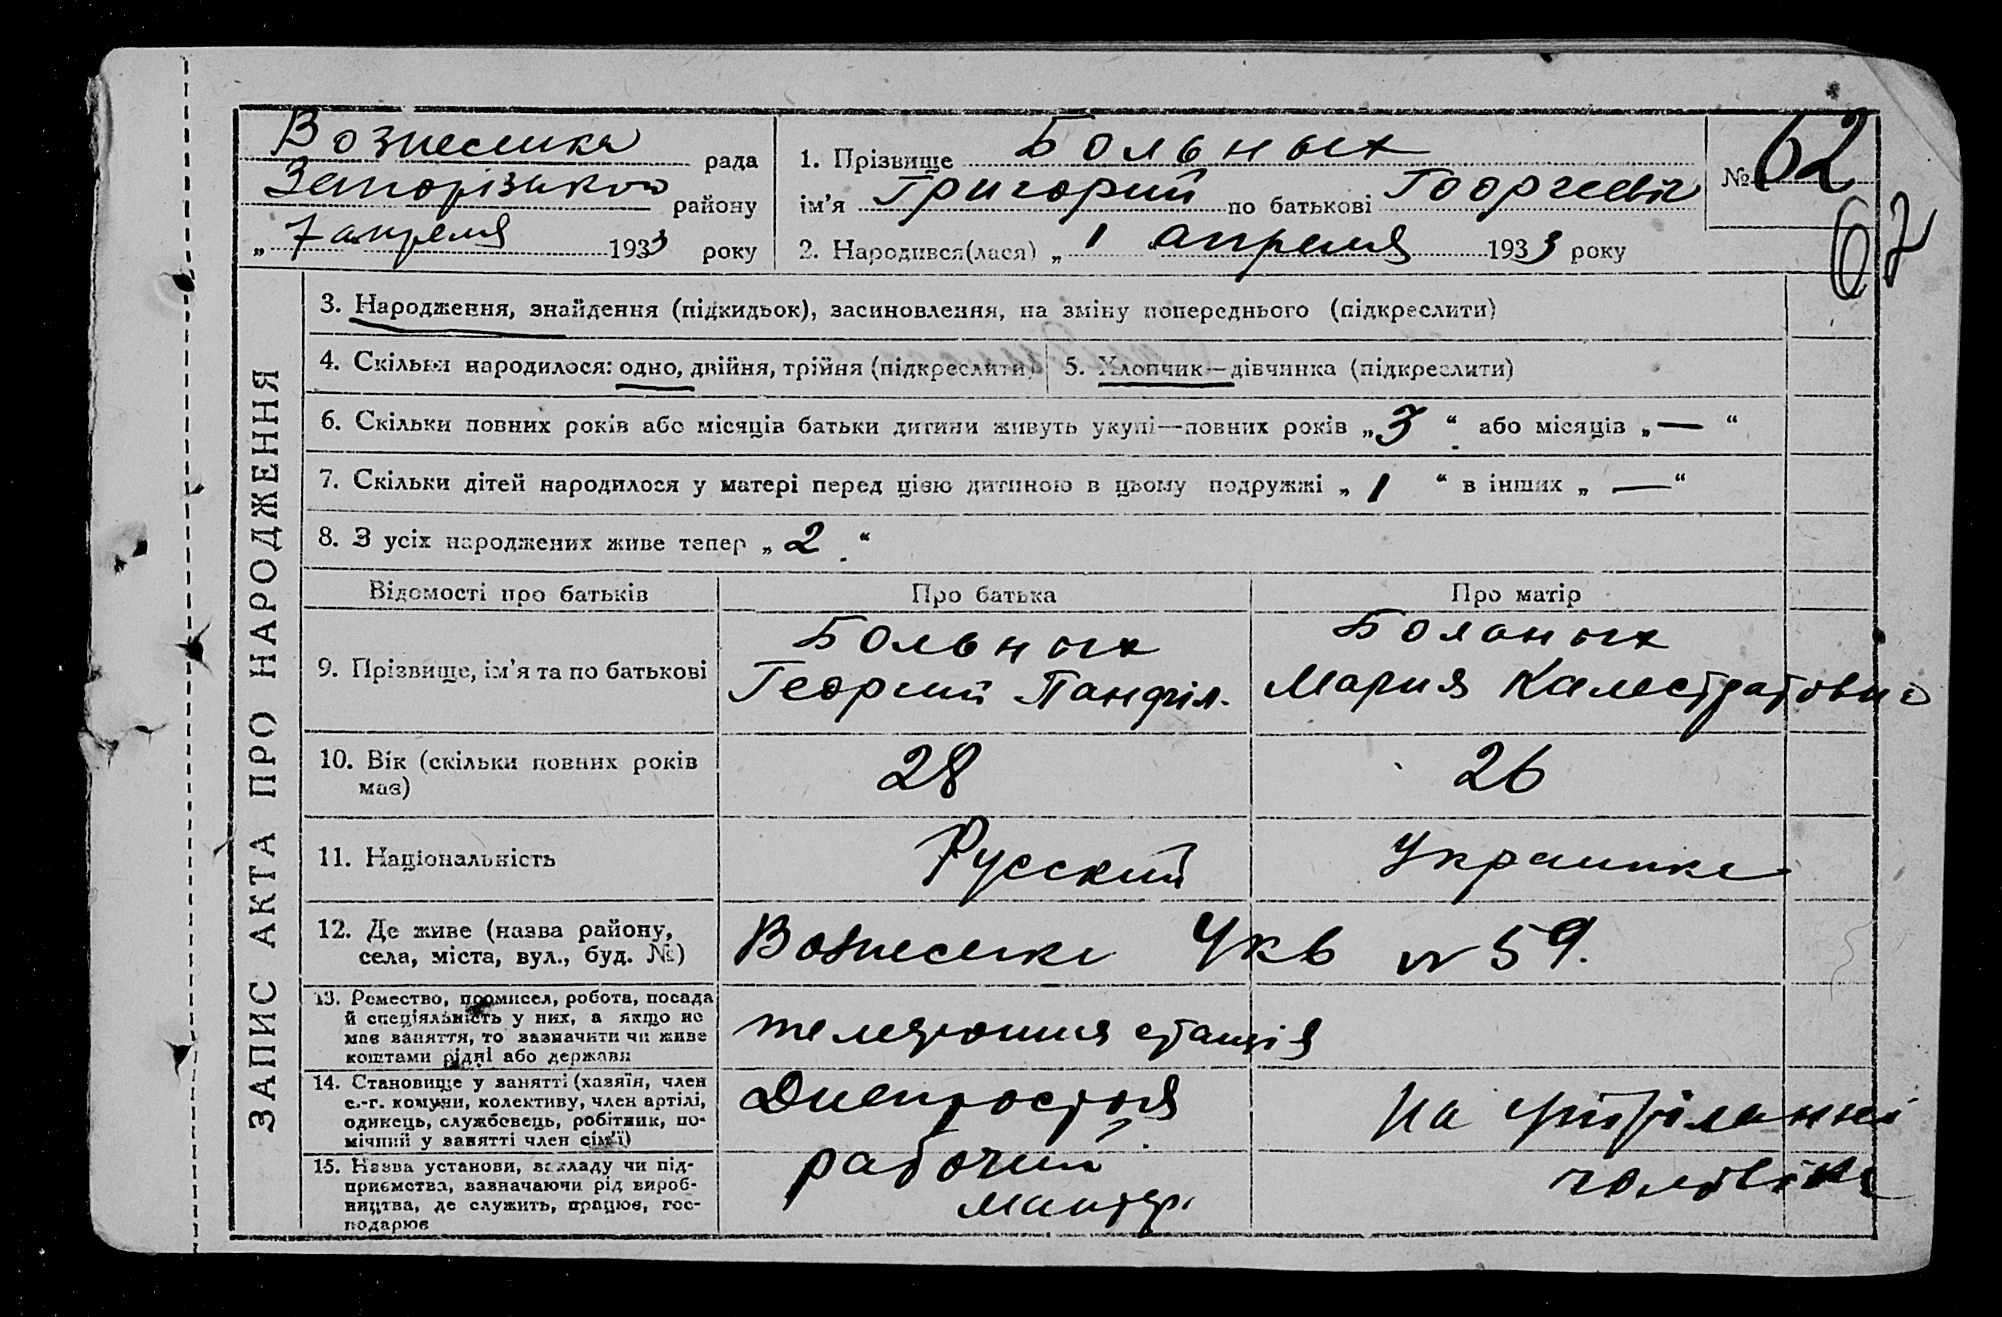 Вознесенка рада
Запорізького району
„ 7 апреля 1933 року
1. Прізвище Больных
ім'я Григорий по батькові Георгиевич
2. Народився(лася) „ 1 апреля 1933 року
№ 62
62
ЗАПИС АКТА ПРО НАРОДЖЕННЯ
3. Народження, знайдення (підкидьок), засиновлення, на зміну попереднього (підкреслити)
4. Скільки народилося: одно, двійня, трійня (підкреслити)
5. Хлопчик—дівчинка (підкреслити)
6. Скільки повних років або місяців батьки дитини живуть укупі—повних років „3“ або місяців „—“
7. Скільки дітей народилося у матері перед цією дитиною в цьому подружжі „1“ в інших „—“
8. З усіх народжених живе тепер „2“
Відомості про батьків Про батька Про матір
9. Прізвище, ім'я та по батькові
Больных
Георгий Панфил.
Больных
Мария Калестратовна
10. Вік (скільки повних років
має)
28
26
11. Національність
Русский
Украинка
12. Де живе (назва району,
села, міста, вул., буд. №)
Вознесенка Укв № 59.
13. Ремество, промисел, робота, посада
й спеціяльність у них, а якщо не
має заняття, то зазначити чи живе
коштами рідні або держави
станція
14. Становище у занятті (хазяїн, член
с.-г. комуни, колективу, член артілі,
одинець, службовець, робітник, по-
мічний у занятті член сім'ї)
Днепростоя
На утріманні
15. Назва установи, закладу чи під-
приємства, зазначаючи рід вироб-
ництва, де служить, працює, гос-
подарює
рабочий
Монтер.
чоловіка